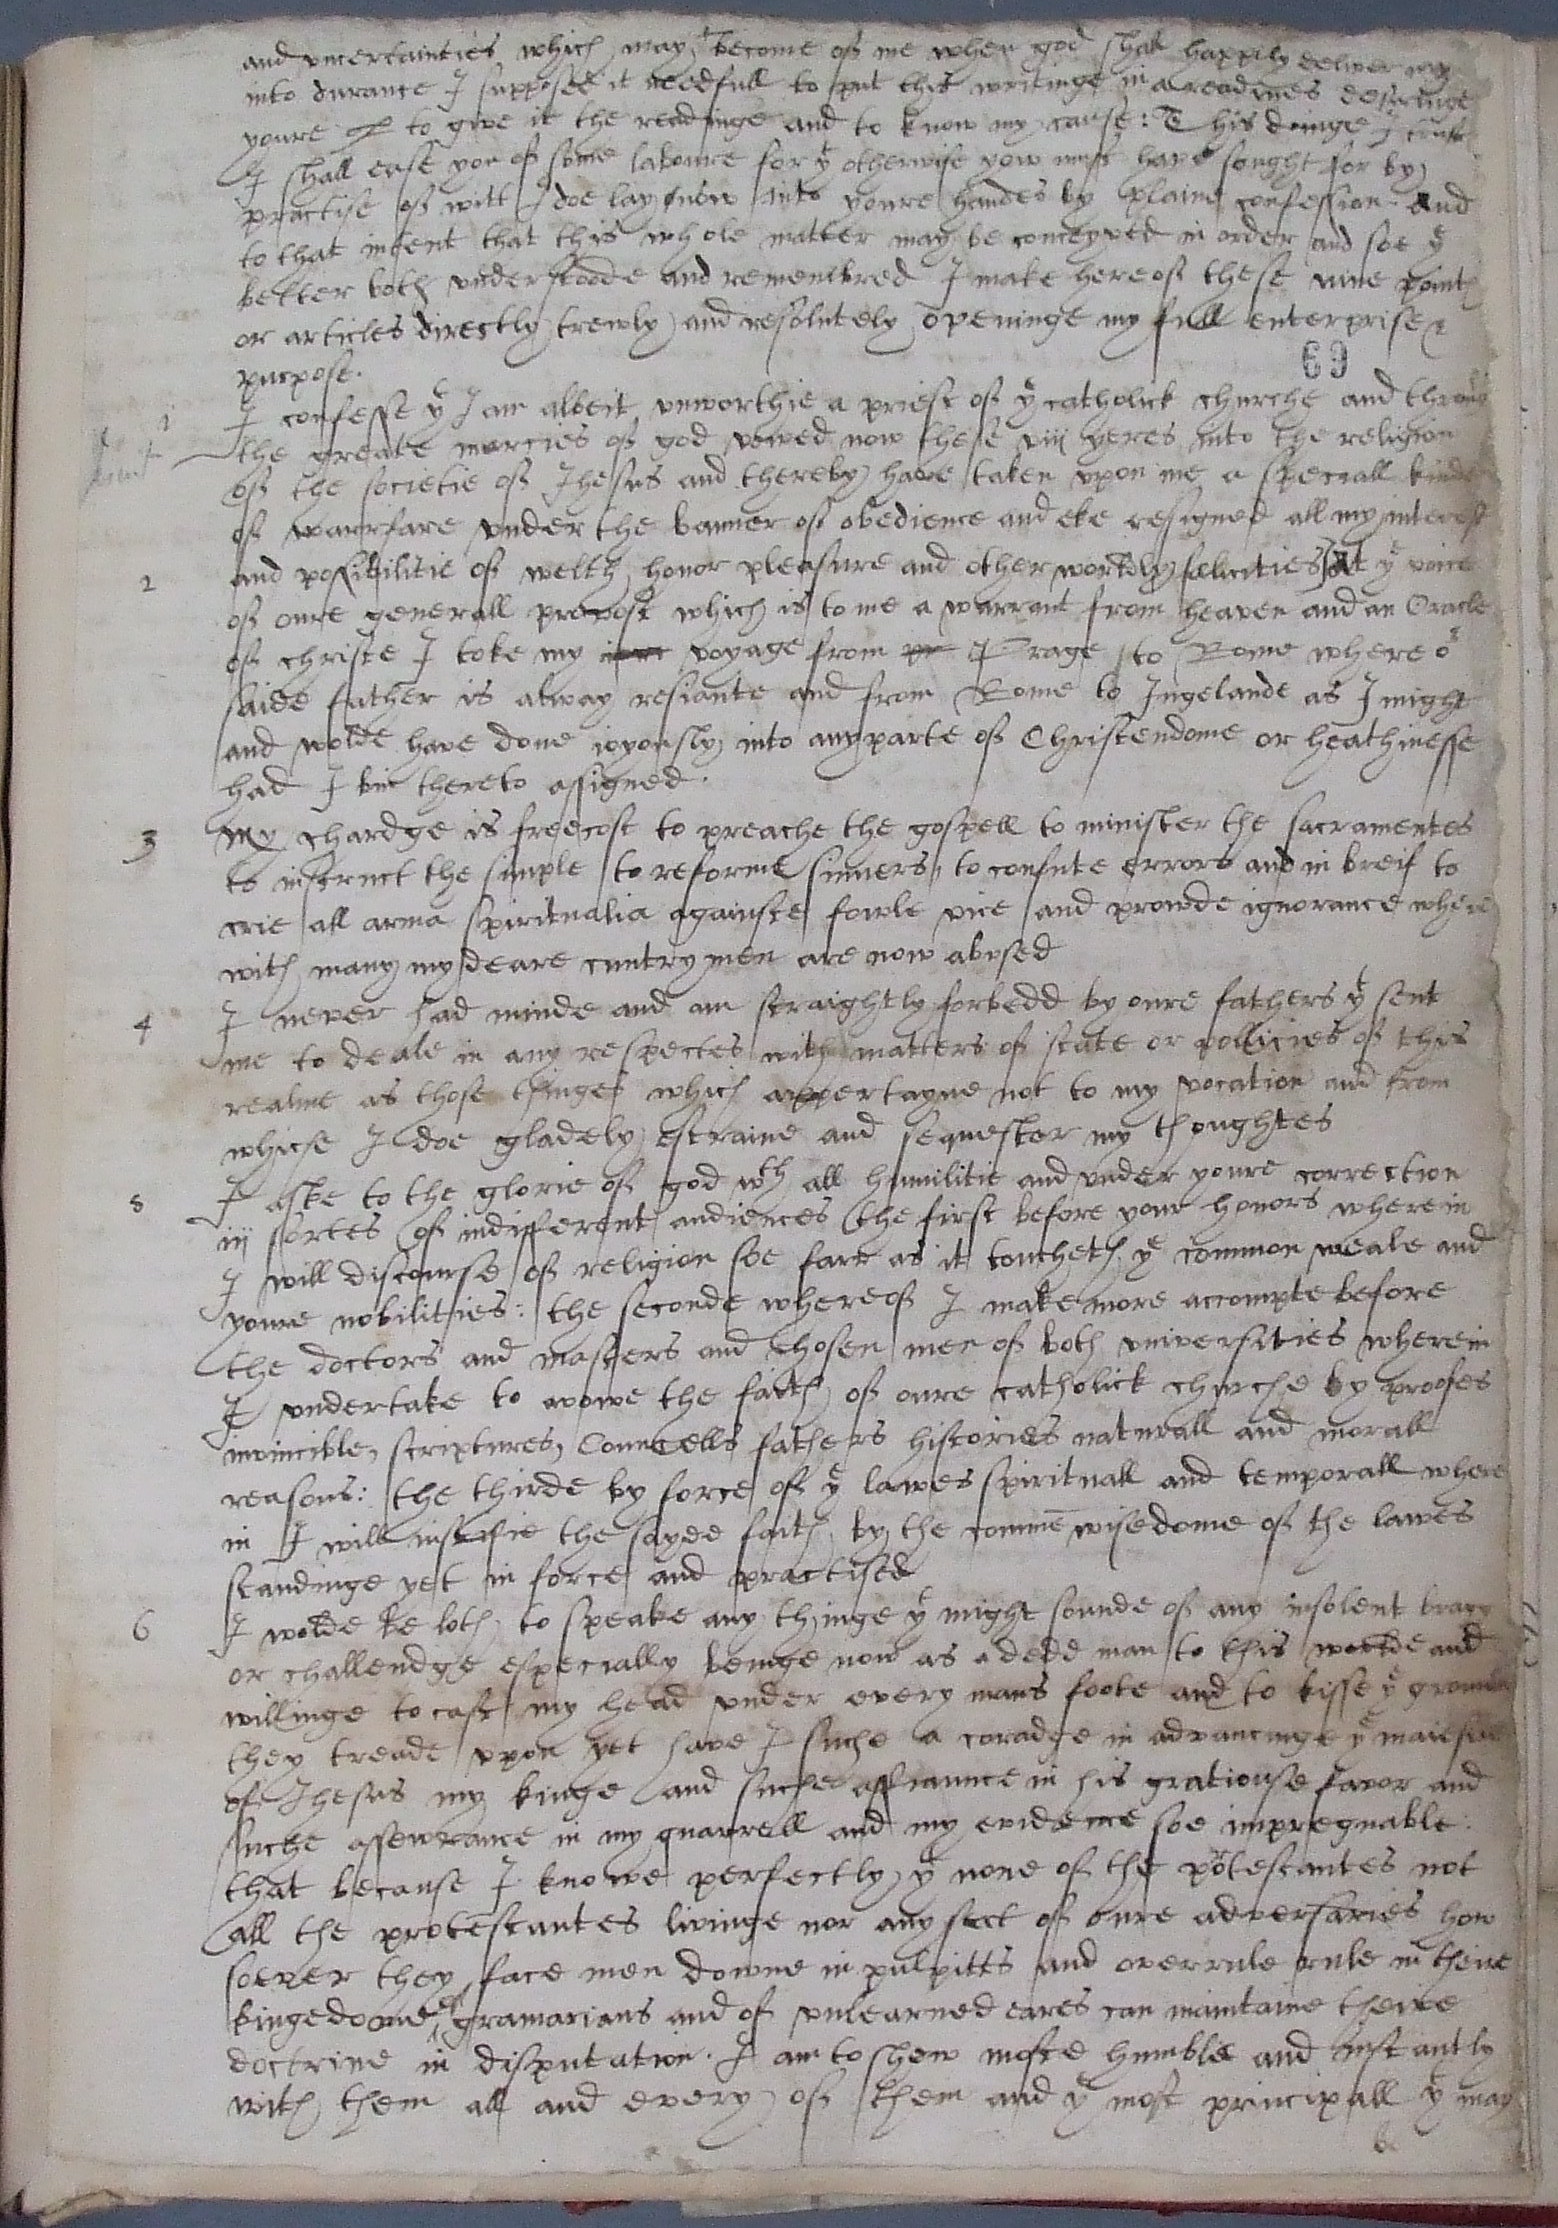 and uncertainties which may become of me when god shall happily deliver my
into durance I supposed it needfull to put this writinge in a readines desiringe
youre to give it the readinge and to know my cause: This doinge I trust
I shall ease you of some laboure for yͤ otherwise yow must have sought for by
practise of witt I doe lay now into youre handes by plaine confession. And
to that intent that this whole matter may be conceyved in order and soe yͤ
better both understoode and remembred I make hereof these nine points
or articles directly trewly and resolutely openinge my full enterprise &
purpose.
69
1 I confesse yͭ I am albeit unworthie a priest of yͤ catholick churche and throug
the greate mercies of god vowed now these viij yeres into the religion
of the societie of Jhesus and thereby have taken upon me a speciall kinde
of warrfare under the banner of obedience and eke resigned all my interest
2 and possibilitie of welth honor pleasure and other worldly felicities At yͤ voice
of oure generall provost which is to me a warrant from heaven and an Oracle
of christe I toke my voyage from Prage to Rome where oͬ
saide father is alway resiante and from Rome to Ingelande as I might
and wolde have done joyously into any parte of Christendome or heathinesse
had I bin thereto assigned.
3 My chardge is freecost to preache the gospell to minister the sacramentes
to instruct the simple to reforme sinners, to confute errors and in breif to
crie all arma spiritualia againste fowle vice and prowde ignorance where
with many my deare cuntrymen are now abused
4 I never had minde and am straightly forbedd by oure fathers yͭ sent
me to deale in any respectes with matters of state or pollicies of this
realme as those thinges which appertayne not to my vocation and from
whiche I doe gladely estraine and sequester my thoughtes
5 I aske to the glorie of god wͭͪ all humilitie and under youre correction
iij sortes of indifferent audiences the first before your honors wherein
I will discourse of religion soe farr as it toucheth yͤ common weale and
youre nobilities: the seconde whereof I make more accompte before
the doctors and masters and chosen men of both universities wherein
I undertake to avowe the faith of oure catholick churche by proofes
invincible, scriptures, Councells fathers histories naturall and morall
reasons: the thirde by force of yͤ lawes spirituall and temporall where
in I will justifie the sayde faith by the commē wisedome of the lawes
standinge yet in force and practised
6 I wolde be loth to speake any thinge yͭ might sounde of any insolent bragg
or challendge especially beinge now as a dede man to this worlde and
willinge to cast my head under every mans foote and to kisse yͤ grounde
they treade upon yet have I suche a coradge in advancinge yͤ maiestie
of Jhesus my kinge and suche affiaunce in his gratiouse favor and
suche assewrance in my quarrell and my evidence soe impregnable:
that because I knowe perfectly yͭ none of the protestantes not
all the protestantes livinge nor any sect of oure adversaries how
soever they face men downe in pulpitts and overrule rule in theire
kingedome of gramarians and of unlearned eares can maintaine theire
doctrine in disputation. I am to shew moste humble and instantly
with them all and every of them and yͤ most principall yͭ may
be